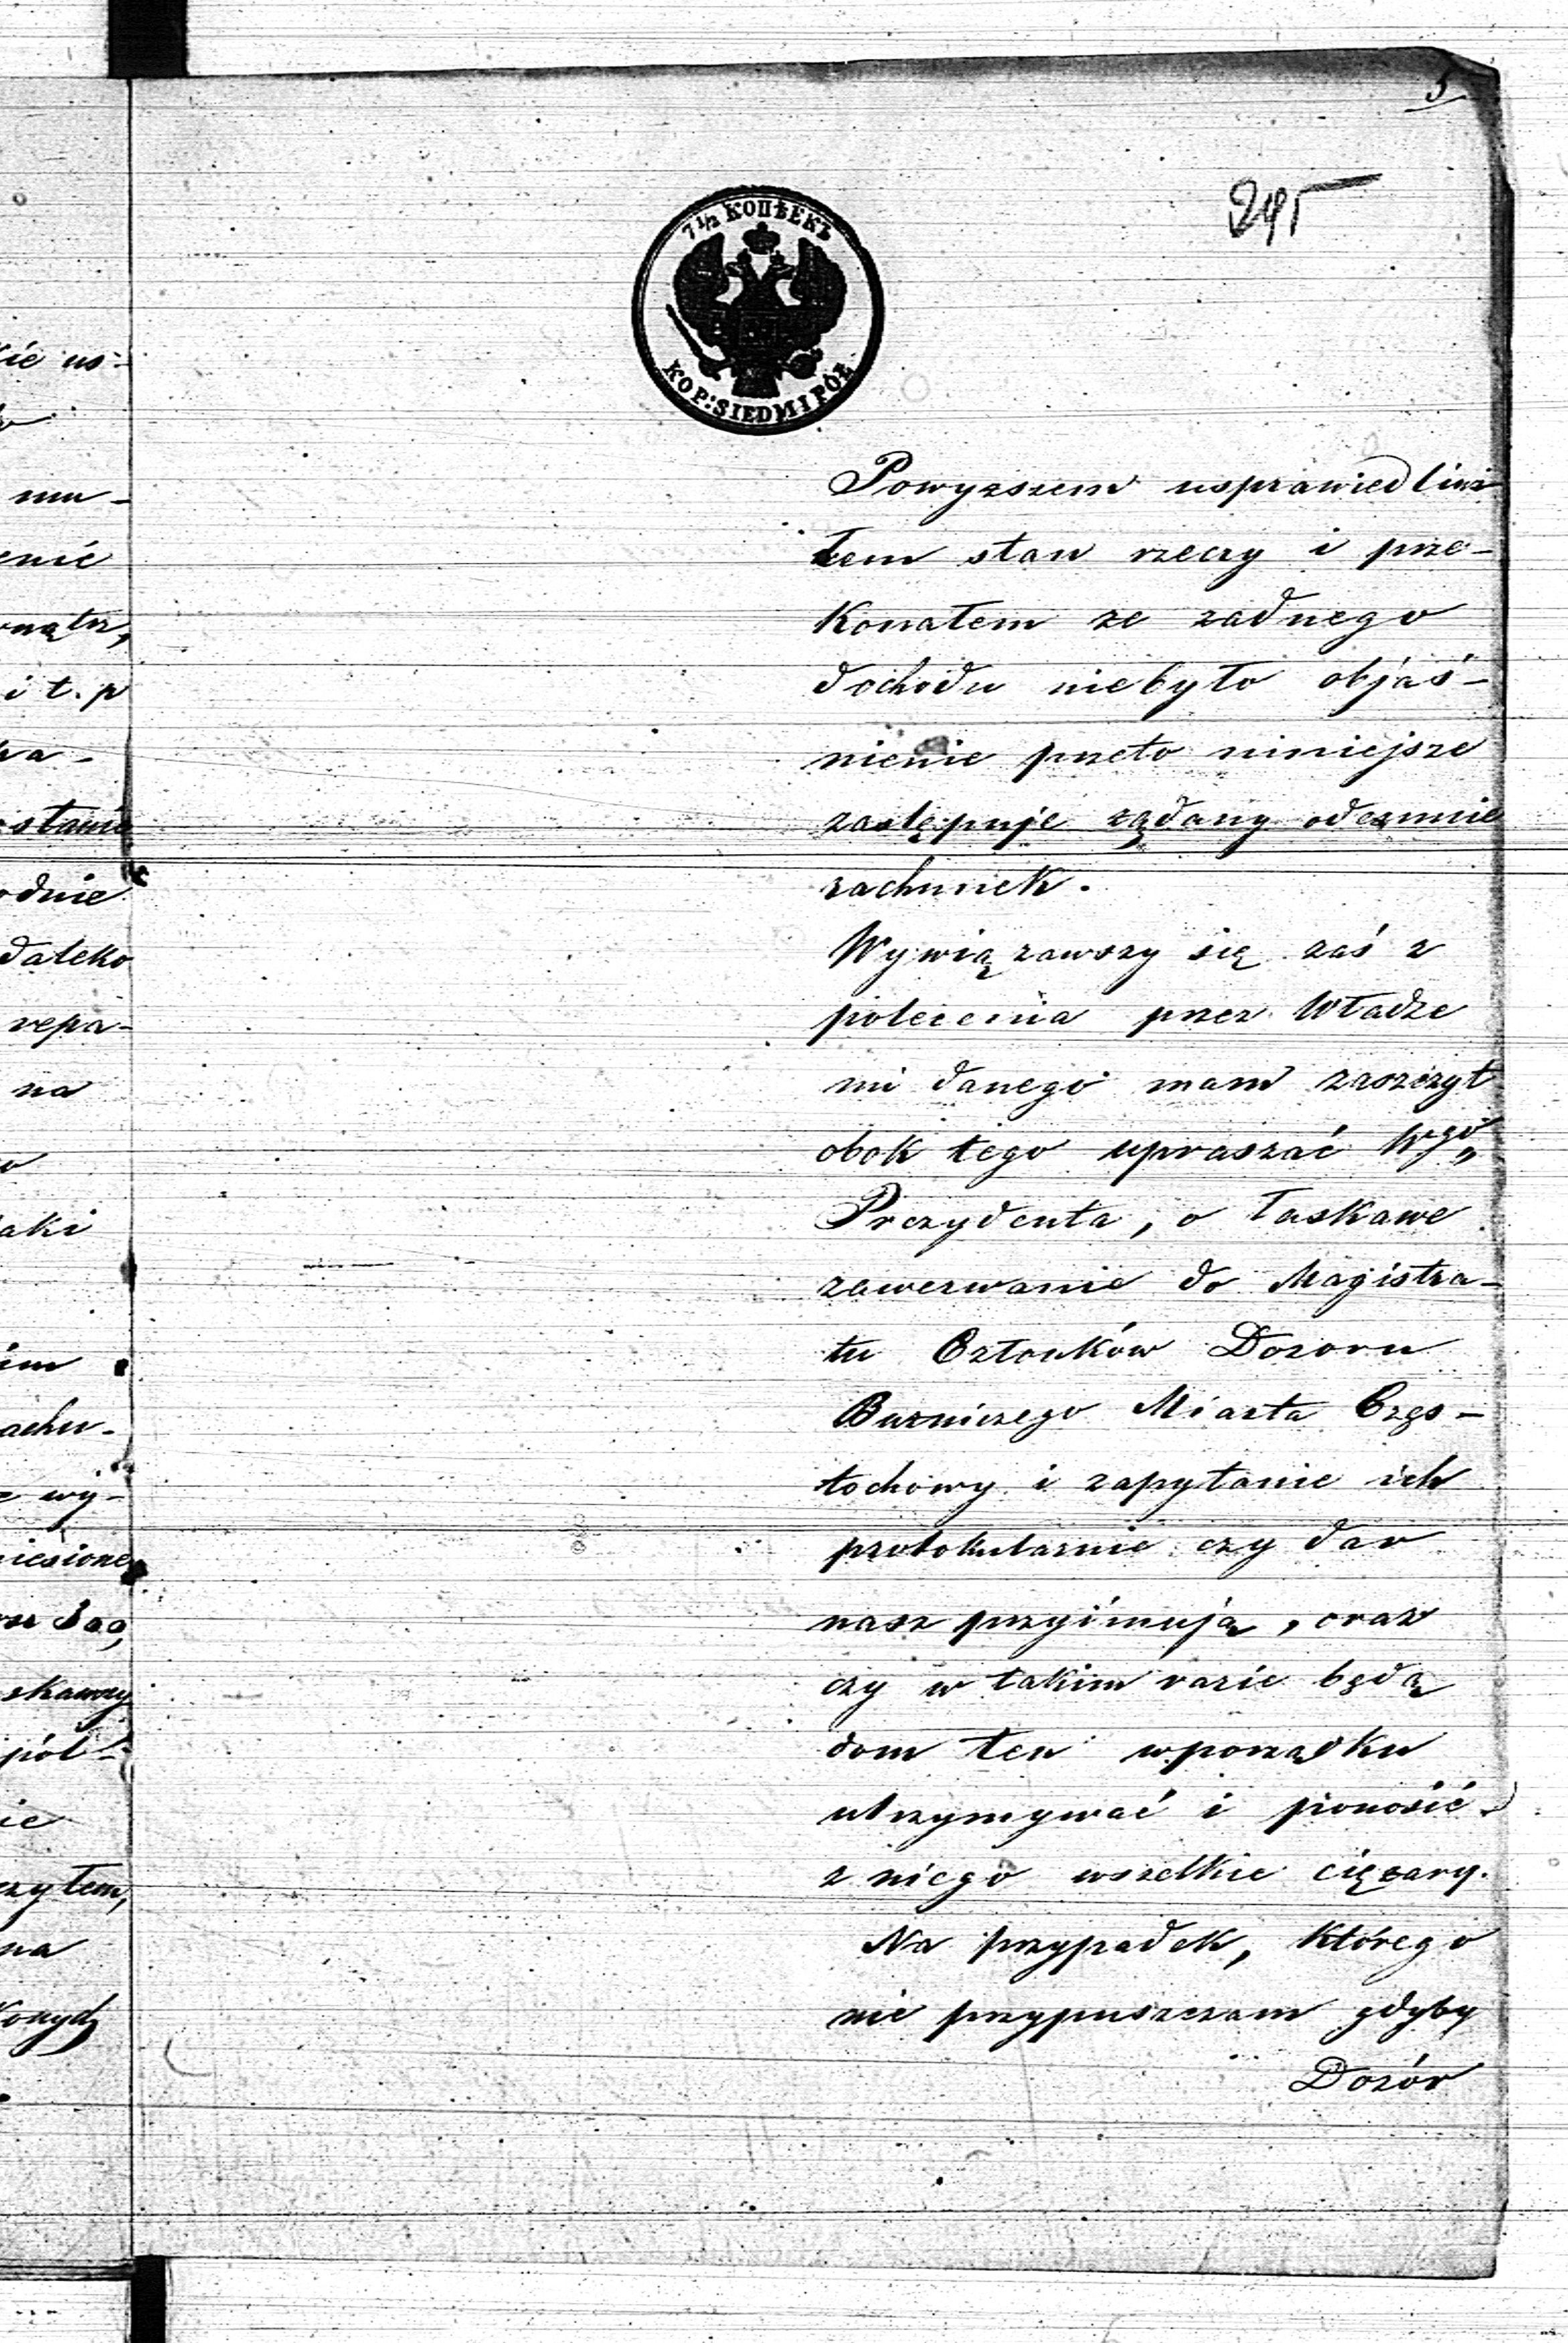 5
295
7 1/2 КОПѢЕКЪ
KOP: SIEDM I PÓŁ
Powyzszem usprawiedliwi
łem stan rzeczy i prze-
konałem ze zadnego
dochodu niebyło objaś-
nienie przeto niniejsze
zastępuje rządany odemnie
rachunek.
Wywiązawszy się zaś z
polecenia przez Władze
mi danego mam zaszczyt
obok tego upraszać Wgo
Prezydenta, o łaskawe
zawezwanie do Magistra-
tu Członków Dozoru
Buzniczego Miasta Częs-
tochowy i zapytanie ich
protokularnie czy dar
nasz przyimują, oraz
czy w takim razie będą
dom ten wporządku
utrzymywać i ponosić
z niego wszelkie ciężary.
Na przypadek, którego
nie przypuszczam gdyby
Dozór
kie us-
mu-
enie
i t. p
stanie
odnie
daleko
repa-
na
aki
im
achu-
wy-
niesione
skawy
pół-
ie
czyłem,
na